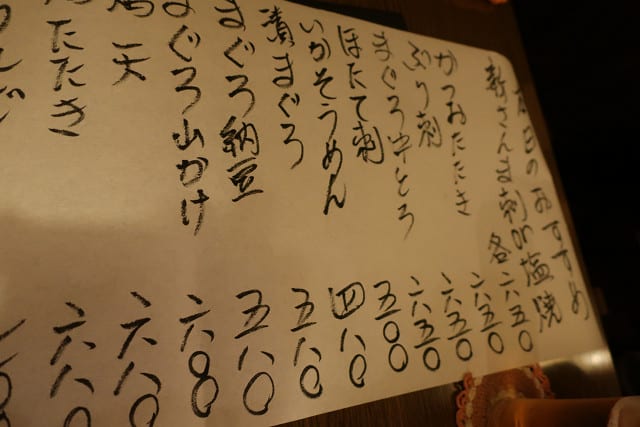 本日のおすすめ
新さんま刺or塩焼 各 六五〇
かつおたたき 六五〇
ぶり刺 六五〇
まぐろ中とろ 六五〇
ほたて刺 五〇〇
いかそうめん 四八〇
漬まぐろ 五八〇
まぐろ納豆 五八〇
まぐろ山かけ 六八〇
天 六八〇
たたき 六八〇